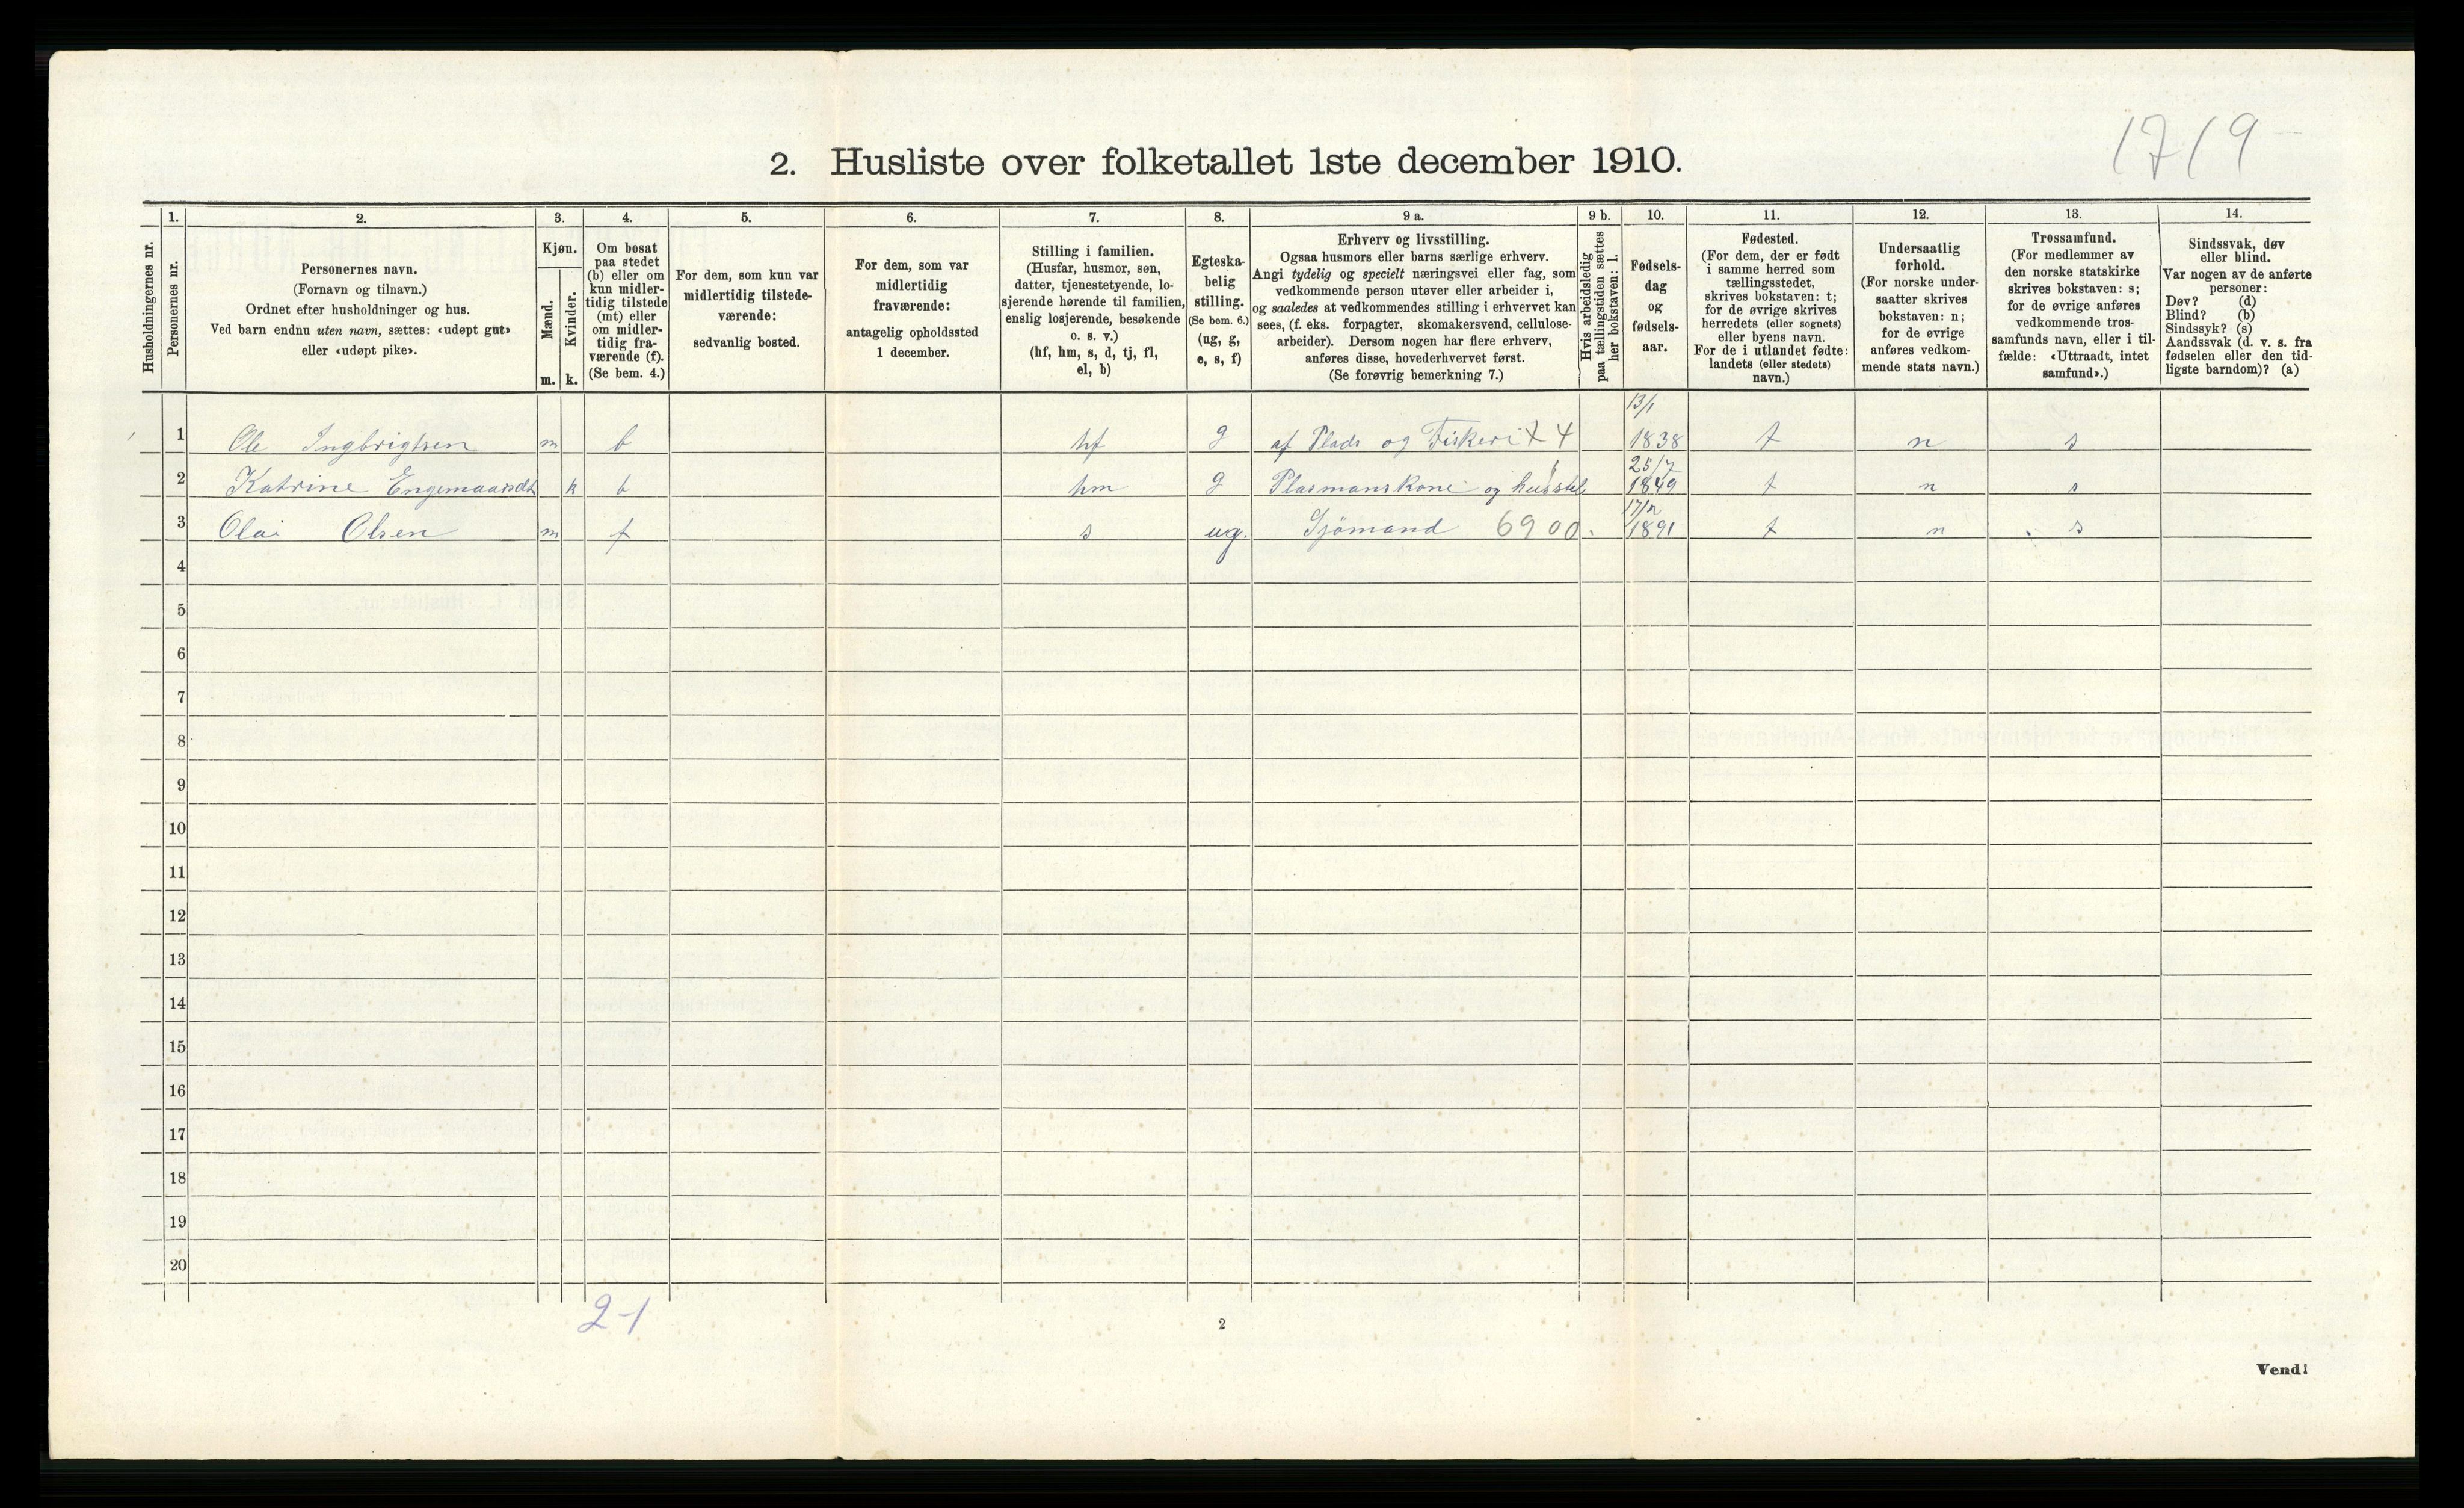 1719
2. Husliste over folketallet 1ste december 1910.
Husholdningernes nr.
1.
Personernes nr.
2.
Personernes navn.
(Fornavn og tilnavn.)
Ordnet efter husholdninger og hus.
Ved barn endnu uten navn, sættes: «udøpt gut»
eller «udøpt pike».
3.
Kjøn.
Mænd.
Kvinder.
m. k.
4.
Om bosat
paa stedet
(b) eller om
kun midler-
tidig tilstede
(mt) eller
om midler-
tidig fra-
værende (f).
(Se bem. 4.)
5.
For dem, som kun var
midlertidig tilstede-
værende:
sedvanlig bosted.
6.
For dem, som var
midlertidig
fraværende:
antagelig opholdssted
1 december.
7.
Stilling i familien.
(Husfar, husmor, søn,
datter, tjenestetyende, lo-
sjerende hørende til familien,
enslig losjerende, besøkende
o. s. v.)
(hf, hm, s, d, tj, fl,
el, b)
8.
Egteska-
belig
stilling.
(Se bem. 6.)
(ug, g,
e, s, f)
9 a.
Erhverv og livsstilling.
Ogsaa husmors eller barns særlige erhverv.
Angi tydelig og specielt næringsvei eller fag, som
vedkommende person utøver eller arbeider i,
og saaledes at vedkommendes stilling i erhvervet kan
sees, (f. eks. forpagter, skomakersvend, cellulose-
arbeider). Dersom nogen har flere erhverv,
anføres disse, hovederhvervet først.
(Se forøvrig bemerkning 7.)
9 b.
Hvis arbeidsledig
paa tællingstiden sættes
her bokstaven: l.
10.
Fødsels-
dag
og
fødsels-
aar.
11.
Fødested.
(For dem, der er født
i samme herred som
tællingsstedet,
skrives bokstaven: t;
for de øvrige skrives
herredets (eller sognets)
eller byens navn.
For de i utlandet fødte:
landets (eller stedets)
navn.)
12.
Undersaatlig
forhold.
(For norske under-
saatter skrives
bokstaven: n;
for de øvrige
anføres vedkom-
mende stats navn.)
13.
Trossamfund.
(For medlemmer av
den norske statskirke
skrives bokstaven: s;
for de øvrige anføres
vedkommende tros-
samfunds navn, eller i til-
fælde: «Uttraadt, intet
samfund».)
14.
Sindssvak, døv
eller blind.
Var nogen av de anførte
personer:
Døv? (d)
Blind? (b)
Sindssyk? (s)
Aandssvak (d. v. s. fra
fødselen eller den tid-
ligste barndom)? (a)
1 Ole Ingbrigtsen m b hf g af Plads og Fiskeri 13/1 1838 t n s
2 Katrine Engemaandt k b hm g Plasmanskone og husstel 25/7 1849 t n s
3 Olai Olsen m f s ug. Sjömand 6900 1891 t n s
4
5
6
7
8
9
10
11
12
13
14
15
16
17
18
19
20
2-1
2
Vend!